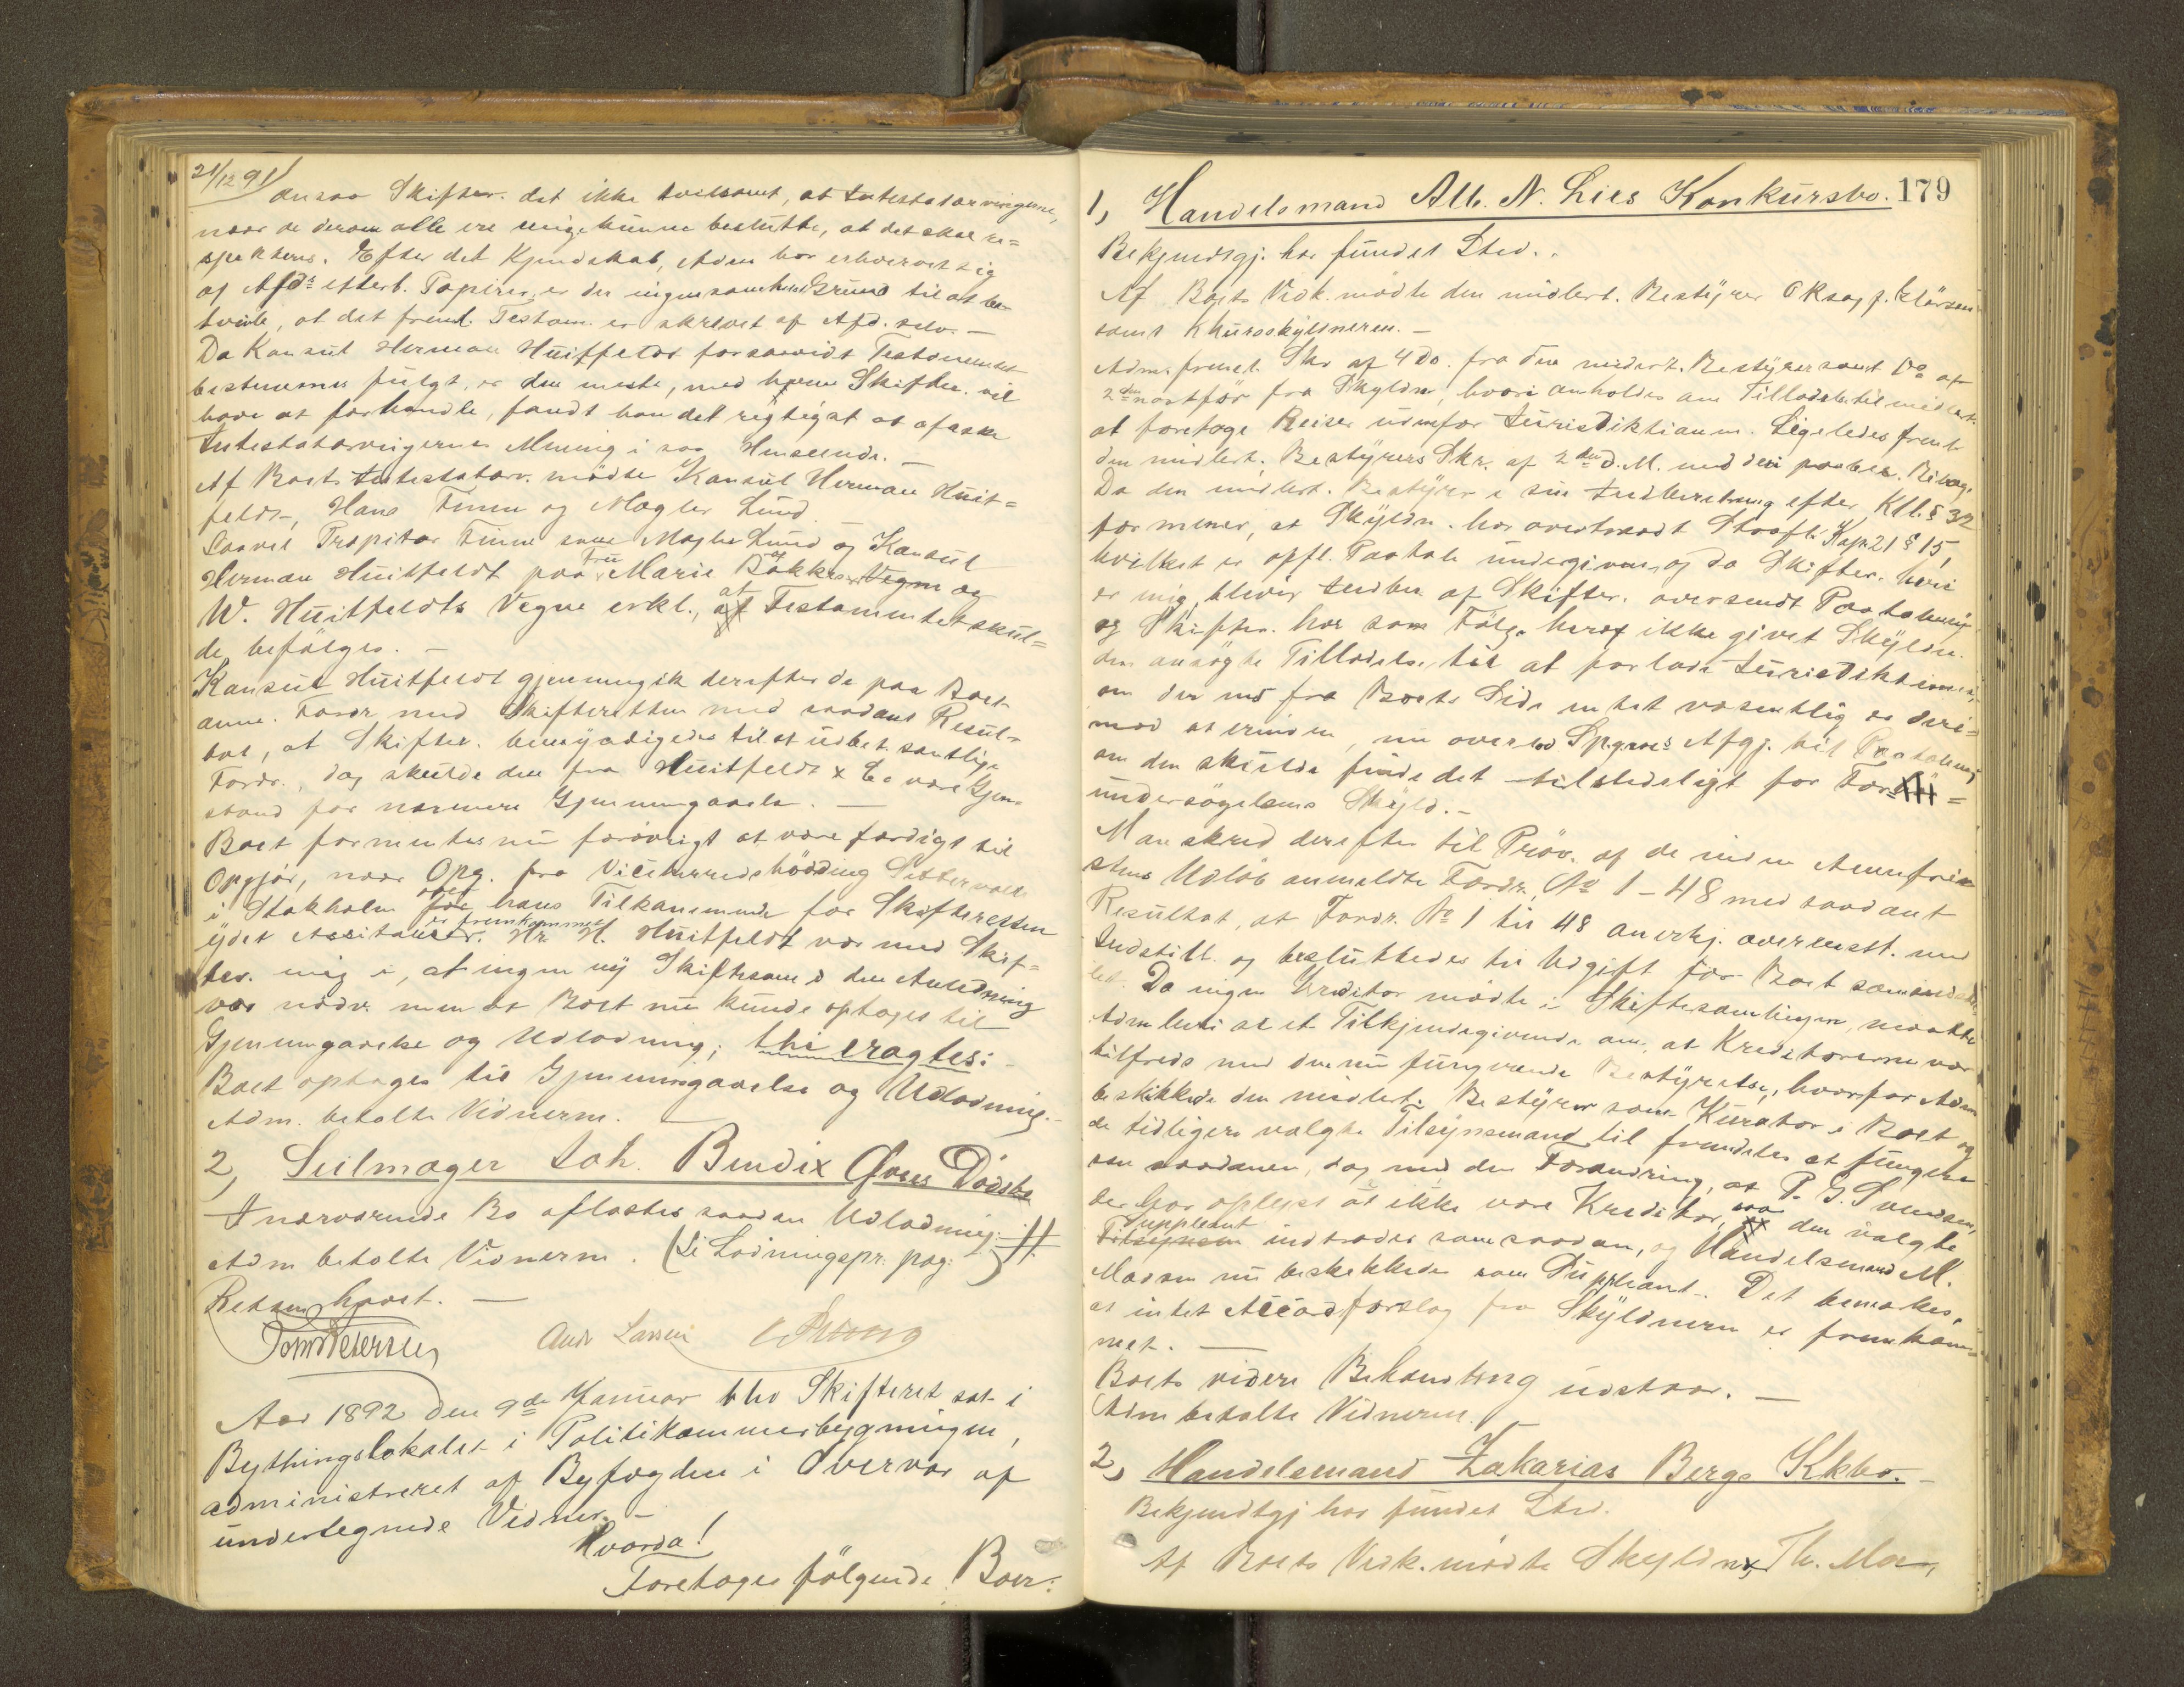 21/12 91
ansaa Skifter. det ikke tvilsomt, at Intestatarvingerne,
naar de derom alle ere enige kunne beslutte, at det skal re=
spekteres. Efter det Kjendskab, Adm har erhvervet sig
af Afd's efterl. Papirer, er der ingensomhelst Grund til at be-
tvivle, at det freml. Testam. er skrevet af Afd. selv. —
Da Konsul Herman Huitfeldt forsaavidt Testamentet
bestemmes fulgt, er den eneste, med hvem Skifter. vil
have at forhandle, fandt han det rigtigst at afæske
Intestatarvingernes Mening i saa Henseende. —
Af Boets Intestatarv. mødte Konsul Herman Huit=
feldt, Hans Finne og Mægler Lund
Saavel Propritær Finne som Mægler Lund og Konsul
Herman Huitfeldt paa Fru Marie Bakkes og
W. Huitfeldts Vegne erkl., at Testamentet skul=
de befølges. —
Konsul Huitfeldt gjennemgik derefter de paa Boet
anm. Fordr med Skifteretten med saadant Resul-
tat, at Skifter. bemyndigedes til at udbet. samtlige
Fordr., dog skulde den fra Huitfeldt & Co være Gjen-
stand for nærmere Gjennemgaaelse. —
Boet formentes nu forøvrigt at være færdigt til
Opgjør, naar Opg. fra Vicehæredshøvding
i Stokholm over hans Tilkommende for Skifteretten
ydet Assitance er fremkommet. Hr H. Huitfeldt var med Skif=
ter. enig i, at ingen ny Skiftesaml i den Anledning
var nødv. men at Boet nu kunde optages til
Gjennemgaaelse og Udlodning; thi eragtes:
Boet optages til Gjennemgaaelse og Udlodning. —
Adm. betalte Vidnerne. —
2, Seilmager Joh. Bendix Øvres Dødsbo
I nærværende Bo afsattes saadan Udlodning: #
Adm betalte Vidnerne. (Se Lodningspr. pag: ) #
Retten hævet. —
Andr Larsen
Aar 1892 den 9de Januar blev Skifteret sat i
Bythingslokalet i Politikammerbygningen,
administreret af Byfogden i Overvær af
undertegnede Vidner. —
Hvorda!
Foretages følgende Boer:
179
1, Handelsmand Alb. N. Lies Konkursbo.
Bekjendtgj. har fundet Sted. .
Af Boets Vedk. mødte den midlert. Bestyrer Oksagf.
samt Kkursskyldneren. —
Adm. freml. Skr af 4 Do. fra den midlert. Bestyrer samt Do af
2den næstfør fra Skyldn, hvori anholdes om Tilladelse til midlert.
at foretage Reiser udenfor Jurisdiktionen. Ligeledes freml
den midlert. Bestyrers Skr. af 2den d. M. med deri paaber. Bilag.
Da den midlert. Bestyrer i sin Indberetning efter Kll. § 32
formener, at Skyldn. har overtraadt Straffel. Kap 21 § 15,
hvilket er offl. Paatale undergiven, og da Skifter. heri
er enig, bliver Indber. af Skifter. oversendt Paatalemy.
og Skifter. har som Følge heraf ikke givet Skyldn.
den ansøgte Tilladelse til at forlade Jurisdiktionen,
om der end fra Boets Side intet væsentlig er deri=
mod at erindre, nu overlod Spgsm's Afgj. til Paatalemy
om den skulde finde det tilstedeligt for Forxxx=
undersøgelsens Skyld. —
Man skred derefter til Prøv. af de inden Anmfri-
stens Udløb anmeldte Fordr. No 1 – 48 med saadant
Resultat, at Fordr. No 1 til 48 anerkj. overensst. med
Indstill. og besluttedes til Udgift for Boet
Da ingen Kreditor mødte i Skiftesamlingen, maatte
Adm heri se et Tilkjendegivende om, at Kreditorerne var
tilfreds med den nu fungerende Bestyrelse, hvorfor Adm
beskikkede den midlert. Bestyrer som Kurator i Boet og
de tidligere valgte Tilsynsmænd til fremdeles at fungere
som saadanne, dog med den Forandring, at P. G. Svendsen,
der har oplyst at ikke være Kreditor, xx den valgte
Suppleant indtræder som saadan, og Handelsmand M.
Madsen nu beskikkedes som Suppleant. Det bemærkes,
at intet Accordforslag fra Skyldneren er fremkom=
met. —
Boets videre Behandling udstaar. —
Adm betalte Vidnerne. —
2, Handelsmand Zakarias Bergs Kkbo. —
Bekjendtgj har fundet Sted.
Af Boets Vedk. mødte Skyldn, Th. Mo-